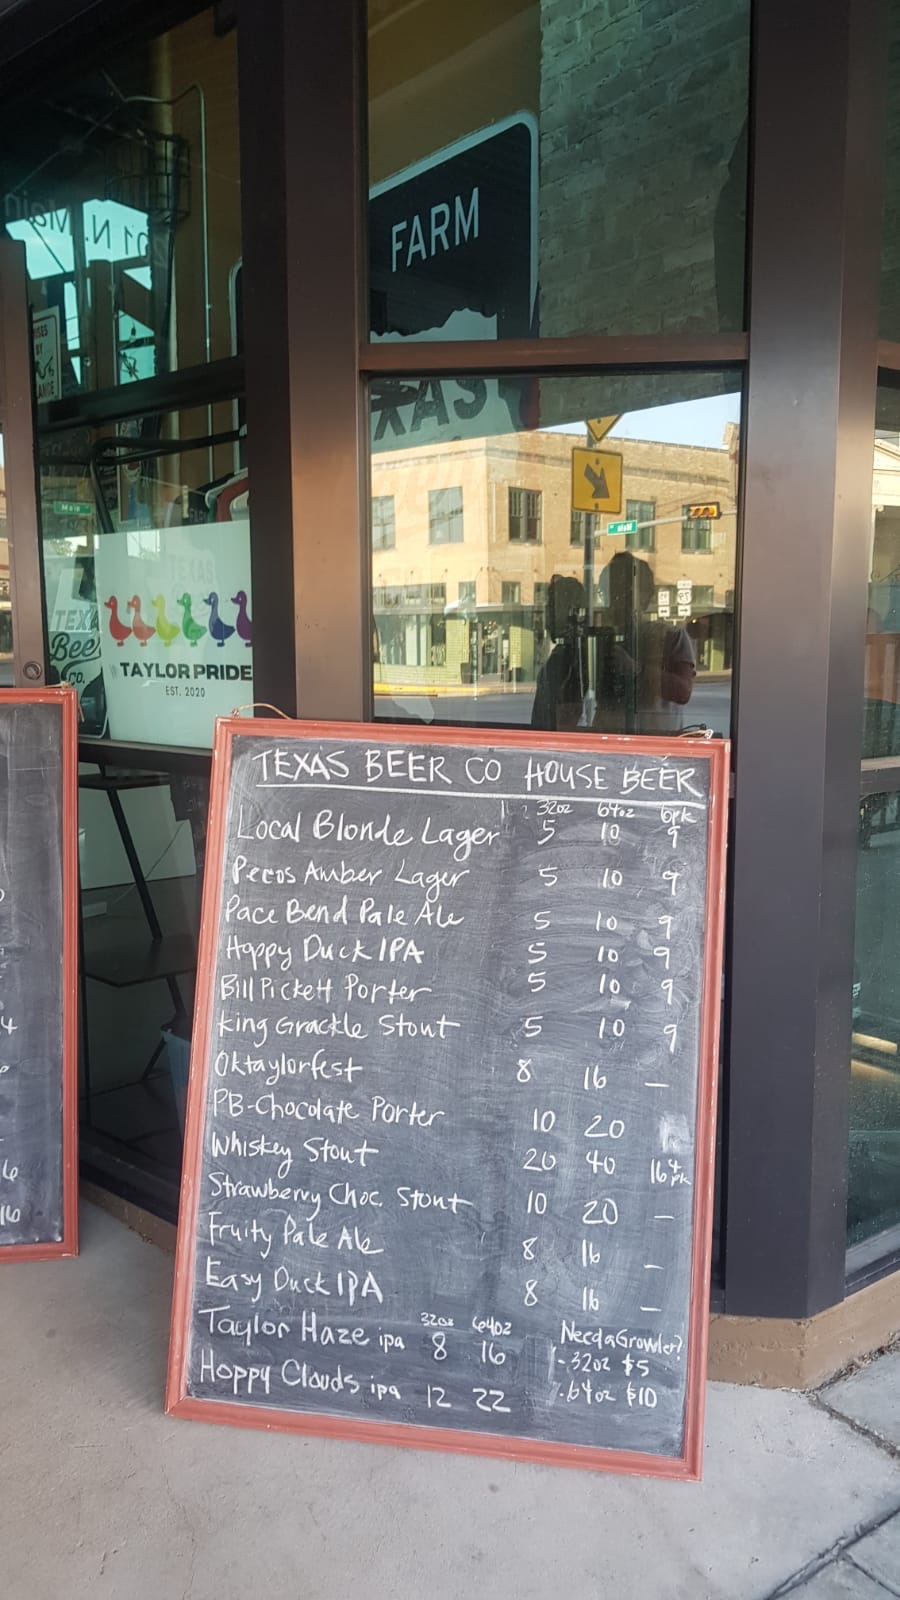 FARM
XAS
TEXAS
TAYLOR PRIDE
EST. 2020
Beer
CO.
TEXAS BEER CO HOUSE BEER
32oz 64oz 6pk
Local Blonde Lager 5 10 9
Pecos Amber Lager 5 10 9
Pace Bend Pale Ale 5 10 9
Hoppy Duck IPA 5 10 9
Bill Pickett Porter 5 10 9
King Grackle Stout 5 10 9
Oktaylorfest 8 16 —
PB-Chocolate Porter 10 20
Whiskey Stout 20 40 16 4pk
Strawberry Choc. Stout 10 20 —
Fruity Pale Ale 8 16 —
Easy Duck IPA 8 16 —
32oz 64oz
Taylor Haze ipa 8 16
Hoppy Clouds ipa 12 22
Need a Growler?
- 32oz $5
- 64oz $10
16